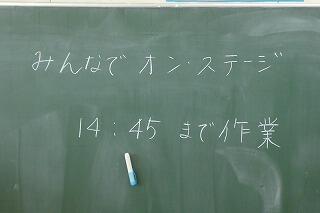 みんなで オン・ステージ
14:45 まで作業